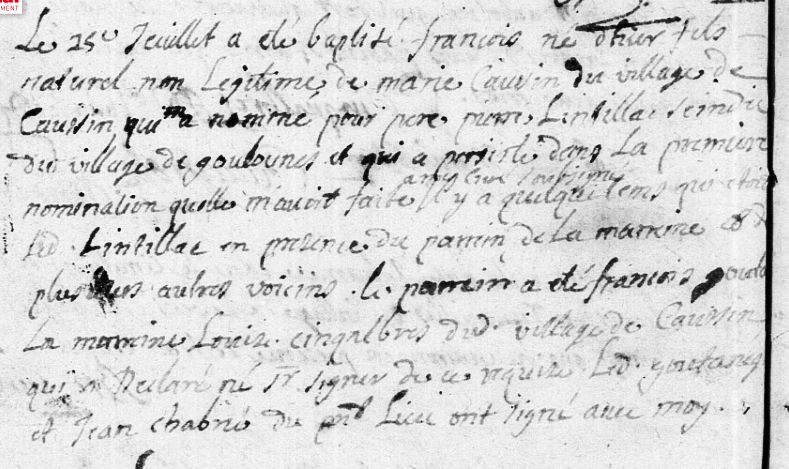 MENT
Le 25e Jeuillet a eté baptisé francois né d'hier fils
naturel non Legitime de marie Caussin du village de
Caussin qui m'a nommé pour pere pierre Lintillac scindic
du village de goulounes et qui a persisté dans La premiere
nomination quelle m'avoit faite il y a quelque tems qui etoit
Led. Lintillac en presence du parrin de La marrine et de
plusieurs autres voicins. le parrein a eté françois
La marrine Louise cingalbres dud. village de Caussin
qui a Declaré ne sr. signer de ce requise Led.
et Jean chabrié du pnt Lieu ont signé avec moy.